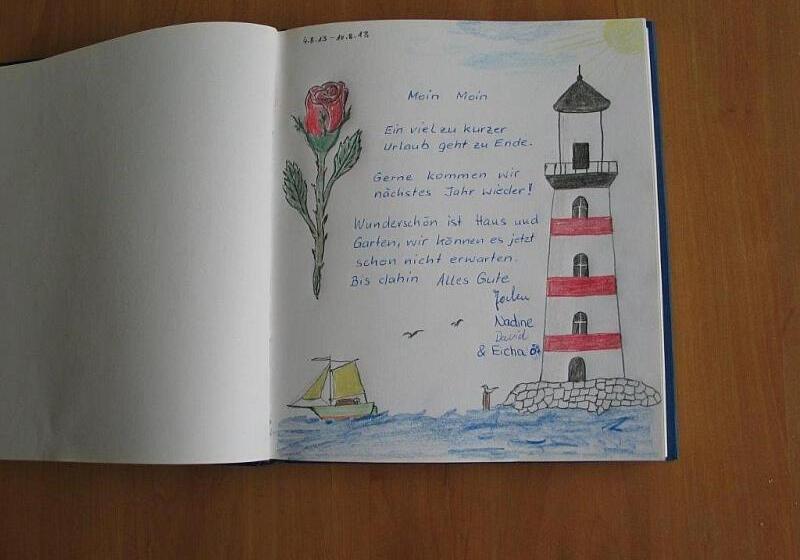 4.8.13 - 10.8.13
Moin Moin
Ein viel zu kurzer
Urlaub geht zu Ende.
Gerne kommen wir
nächstes Jahr wieder!
Wunderschön ist Haus und
Garten, wir können es jetzt
schon nicht erwarten.
Bis dahin Alles Gute
Nadine
David
& Eicha